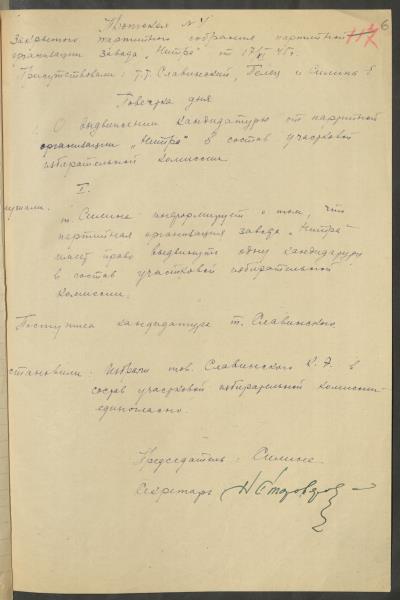 Протокол № 4
6
117
Закрытого партийного собрания партийной
организации завода „Нитра" от 17/XI 45 г.
Присутствовали: т.т. Славинский, и Силине
Повестка дня
О выдвижении кандидатуры от партийной
организации „Нитра" в состав участковой
избирательной комиссии
I.
т. Силине информирует о том, что
партийная организация завода „Нитра"
имеет право выдвинуть одну кандидатуру
в состав участковой избирательной
комиссии.
Поступила кандидатура т. Славинского
становили: Избрали тов. Славинского К. Э. в
состав участковой избирательной комиссии
единогласно.
Председатель: Силине
Секретарь